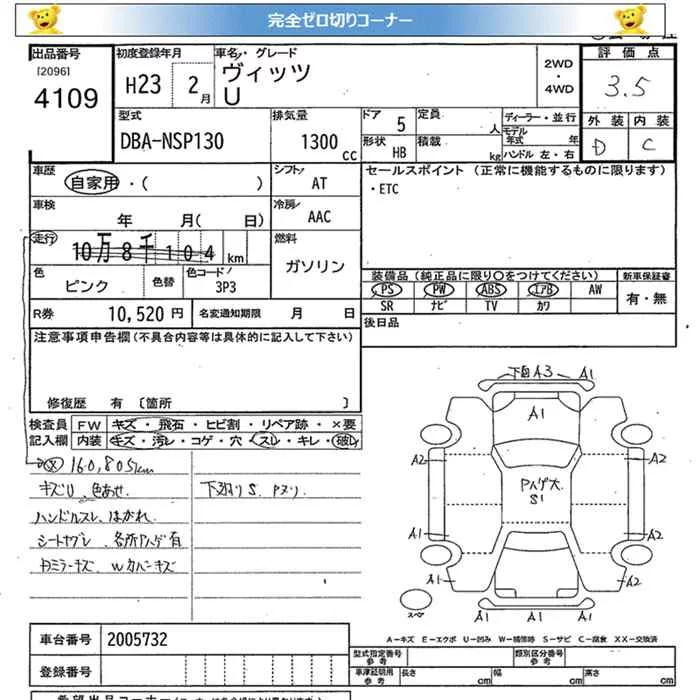 完全ゼロ切りコーナー
出品番号
[2096]
4109
初度登録年月
H23 2月
車名・グレード
ヴィッツ
U
2WD
・
4WD
評価点
3.5
外装 内装
D C
型式
DBA-NSP130
排気量
1300
cc
ドア 5
定員 人
形状 HB
積載 kg
ディーラー・並行
モデル年式 年
ハンドル 左・右
車歴
自家用・( )
シフト/
AT
セールスポイント (正常に機能するものに限ります)
・ETC
車検
年 月( 日)
冷房/
AAC
走行
10万8千104 km
燃料
ガソリン
色
ピンク
色替
色コード/
3P3
装備品 (純正品に限り○をつけてください)
新車保証書
PS PW ABS エアB AW
SR ナビ TV カワ
有・無
R券
10,520 円
名変通知期限 月 日
後日品
注意事項申告欄(不具合内容等は具体的に記入して下さい)
修復歴 有 〔箇所 〕
検査員
記入欄
FW キズ・飛石・ヒビ割・リペア跡・×要
内装 キズ・汚レ・コゲ・穴・スレ・キレ・破レ
160,805km
キズU、色あせ
下廻りS、Pヌリ
ハンドルスレ、はがれ
シートヤブレ、各所Pハゲ有
Dミラーキズ Wカバーキズ
A3 A1
A1
A2 A2
Pハゲ大
S1
A1 A2
A1 A2
スペア
A1 A1 A1
A-キズ E-エクボ U-凹み W-補修跡 S-サビ C-腐食 XX-交換済
車台番号
2005732
登録番号
型式指定番号
参考
類別区分番号
参考
車検証明用
参考
長さ cm
幅 cm
高さ cm